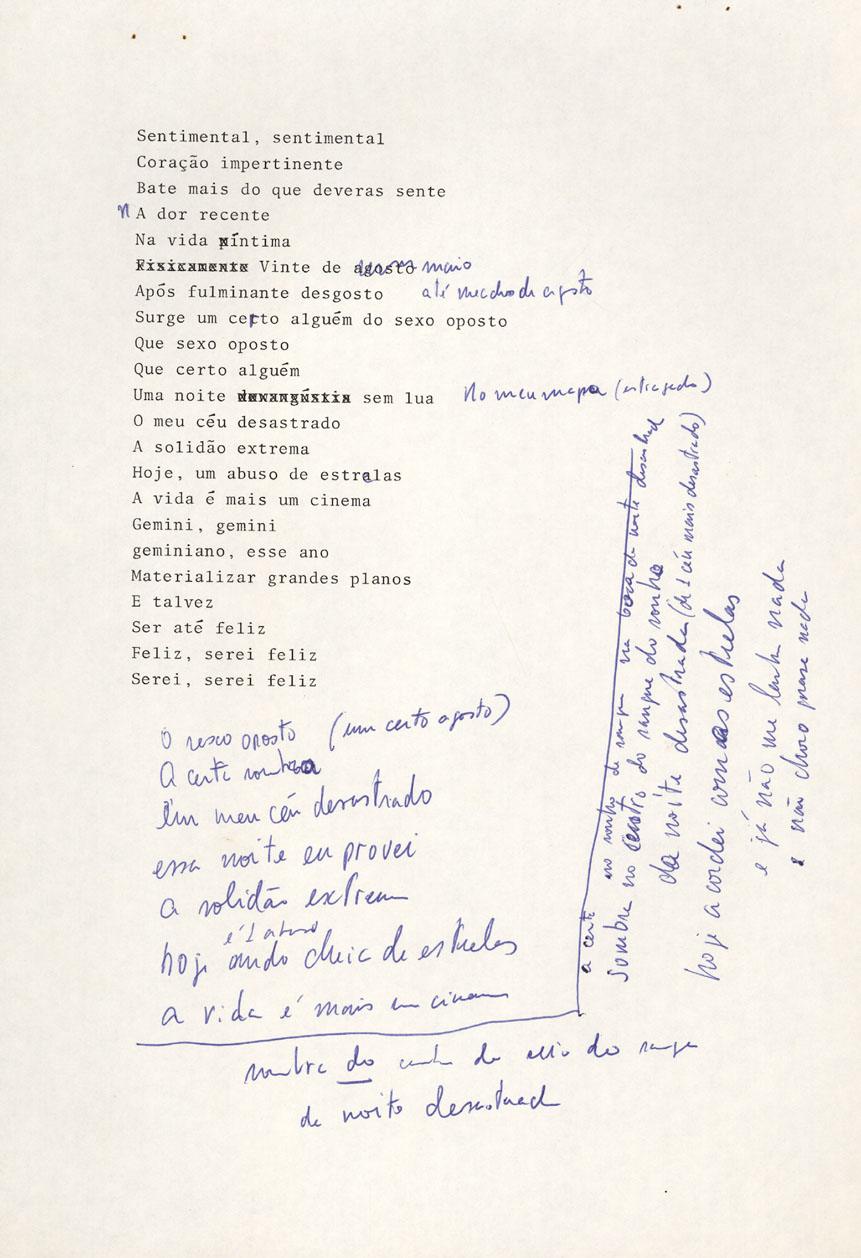 Sentimental, sentimental
Coração impertinente
Bate mais do que deveras sente
n A dor recente
Na vida íntima
Fisicamente Vinte de agosto maio
Após fulminante desgosto até meados de agosto
Surge um certo alguém do sexo oposto
Que sexo oposto
Que certo alguém
Uma noite sem lua No meu mapa (estragado)
O meu céu desastrado
A solidão extrema
Hoje, um abuso de estrelas
A vida é mais um cinema
Gemini, gemini
geminiano, esse ano
Materializar grandes planos
E talvez
Ser até feliz
Feliz, serei feliz
Serei, serei feliz
O sexo oposto (um certo agosto)
A certa sombra
Em meu céu desastrado
essa noite eu provei
a solidão extrema
é 1 abuso
hoje ando cheia de estrelas
a vida é mais um cinema
sombra do do sangue
de noite desastrada
a certa no sonho de sangue na boca da noite desastrada
sombra no centro do sangue do sonho
da noite desastrada (de 1 céu mais desastrado)
hoje acordei com as estrelas
e já não me lembra nada
e não choro quase nada